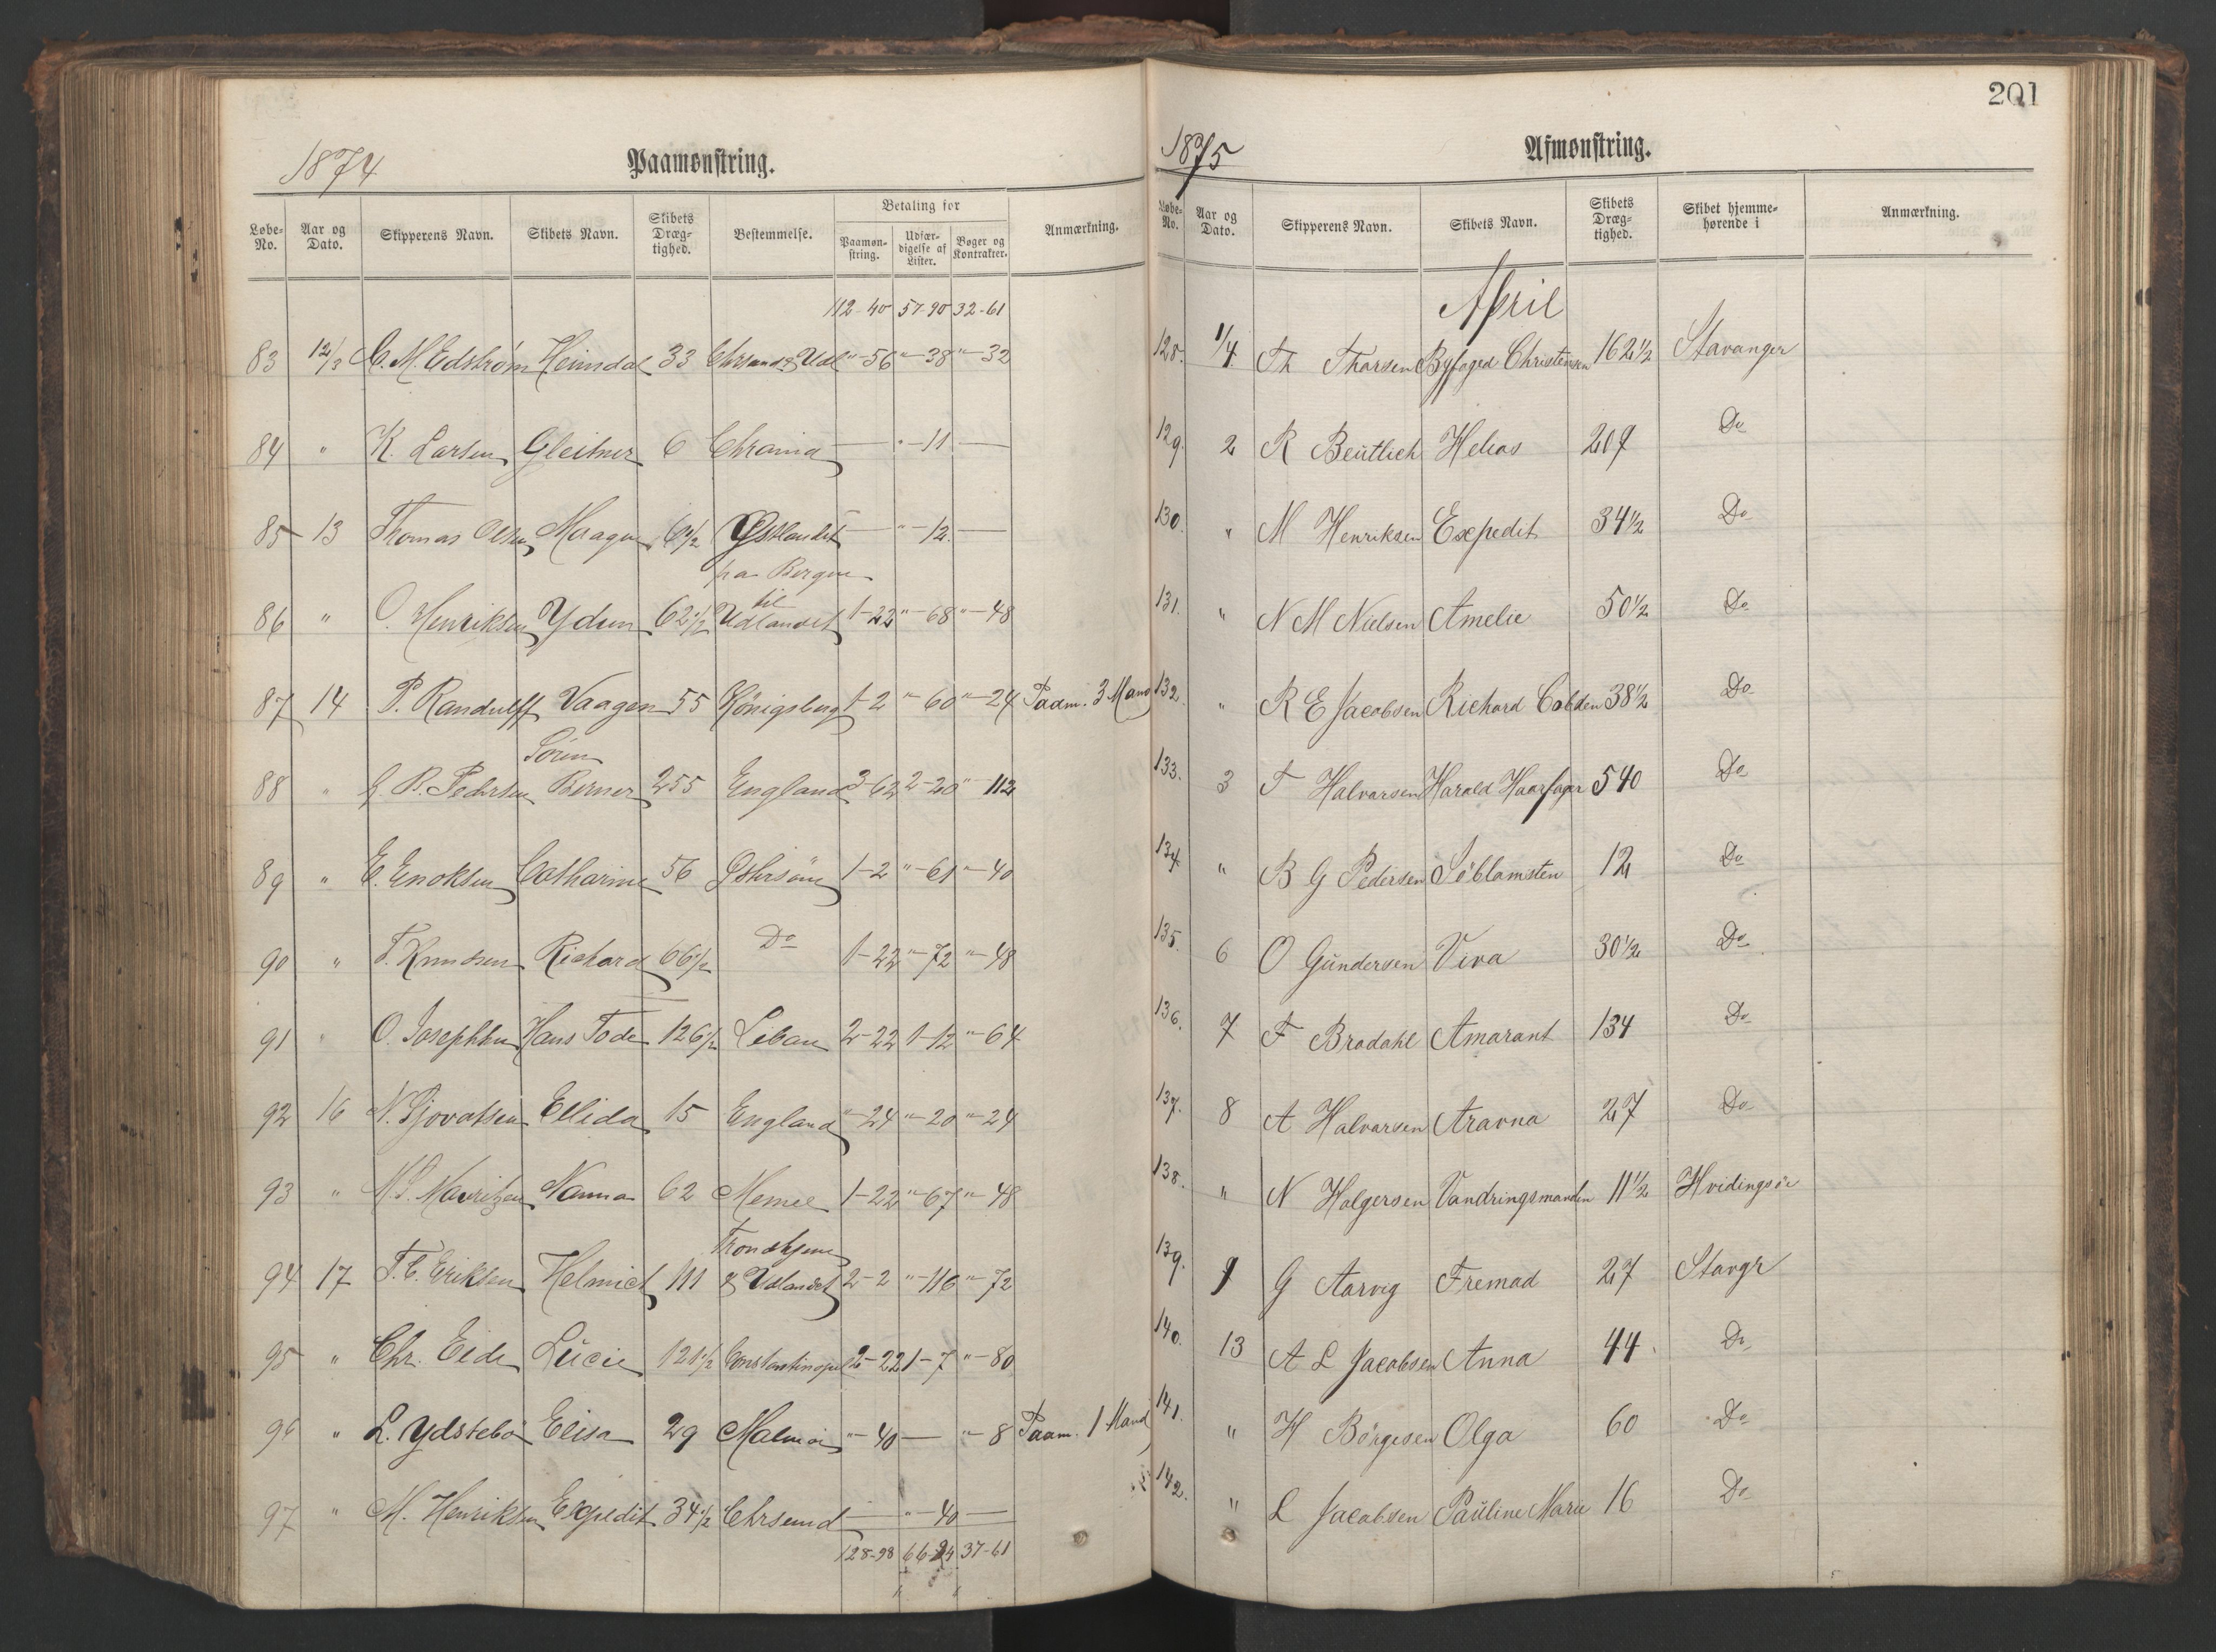 1874 Paamønstring.
Løbe-No. Aar og Dato. Skipperens Navn. Skibets Navn. Skibets Dræg-tighed. Bestemmelse. Betaling for Paamøn-string. Udfær-digelse af Lister. Bøger og Kontrakter. Anmærkning.
112-40 57-90 32-61
83 12/3 C. M. Edstrøm Heimdal 33 Chrsand & Udl "-56 "-38 "-32
84 " K. Larsen Gleitner 6 Chrania — "-11 —
85 13 Thomas Olsen Maagen 6 1/2 Østlandet — "-12 —
fra Bergen
86 " O. Henriksen Ydun 62 1/2 til Udlandet 1-22 "-68 "-48
87 14 P. Randulff Vaagen 55 Königsberg 1-2 "-60 "-24 Paam. 3 Mand
88 " G. B. Pedersen Søren Berner 255 England 3-62 2-20 "-112
89 " E. Enoksen Catharine 56 Østersöen 1-2 "-61 "-40
90 " T. Knudsen Richard 66 1/2 Do 1-22 "-72 "-48
91 " O. Josephsen Hans Tode 126 1/2 Libau 2-22 1-12 "-64
92 16 N. Sjovatsen Ellida 15 England "-24 "-20 "-24
93 " M. S. Mauritzen Nanna 62 Memel 1-22 "-67 "-48
94 17 T. C. Eriksen Helmich 111 Trondhjem & Udlandet 2-2 "-116 "-72
95 " Chr. Eide Lucie 121 1/2 Constantinopel 2-22 1-7 "-80
96 " L. Ydstebø Elisa 29 Malmøe "-40 — "-8 Paam. 1 Mand
97 " M. Henriksen Expedit 34 1/2 Chrsund — "-40 —
128-98 66-24 37-61
201
1875 Afmønstring.
Løbe-No. Aar og Dato. Skipperens Navn. Skibets Navn. Skibets Dræg-tighed. Skibet hjemme-hørende i Anmærkning.
April
128. 1/4 Th Thorsen Byfoged Christensen 162 1/2 Stavanger
129. 2 R Beutlich Helios 207 Do
130. " M Henriksen Expedit 34 1/2 Do
131. " N M Nielsen Amelie 50 1/2 Do
132. " R E Jacobsen Richard Cobden 38 1/2 Do
133. 3 T Halvorsen Harald Haarfager 540 Do
134. " B G Pedersen Søblomsten 12 Do
135. 6 O Gundersen Viva 30 1/2 Do
136. 7 F Brodahl Amarant 134 Do
137. 8 A Halvorsen Aravna 27 Do
138. " N Holgersen Vandringsmanden 11 1/2 Hvidingsøe
139. 9 G Aarvig Fremad 27 Stavgr
140. 13 A L Jacobsen Anna 44 Do
141. " H Børgesen Olga 60 Do
142. " L Jacobsen Pauline Marie 16 Do